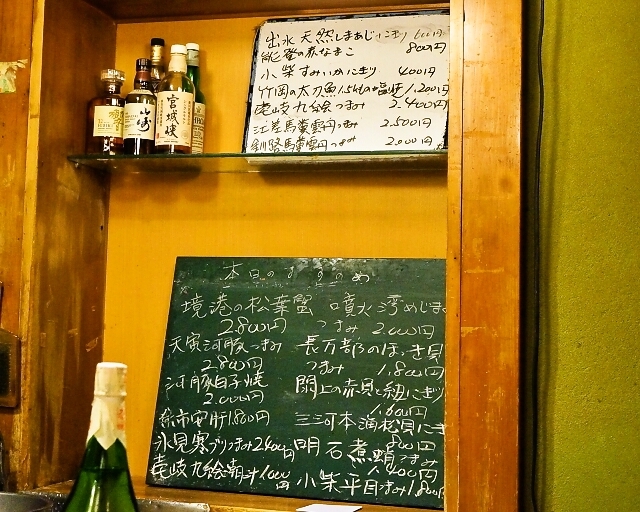 出水 天然しまあじにぎり 600円
能登の赤なまこ 800円
小柴すみいかにぎり 400円
竹岡の太刀魚 塩焼 1,200円
壱岐九絵つまみ 2,400円
江差馬糞雲丹つまみ 2,500円
釧路馬糞雲丹つまみ 2,000円
山崎
宮城峡
本日のおすすめ
境港の松葉蟹
2,800円
天然河豚つまみ
2,800円
河豚白子焼
2,000円
余市安肝 1,800円
氷見寒ブリつまみ 2,400円
壱岐九絵潮汁 1,000円
噴火湾めじま
つまみ 2,000円
長万部のほっき貝
つまみ 1,800円
閖上の赤貝と紐にぎり
三河本海松貝にぎ
800円
明石煮蛸つまみ
1,400円
小柴平目つまみ 1,800